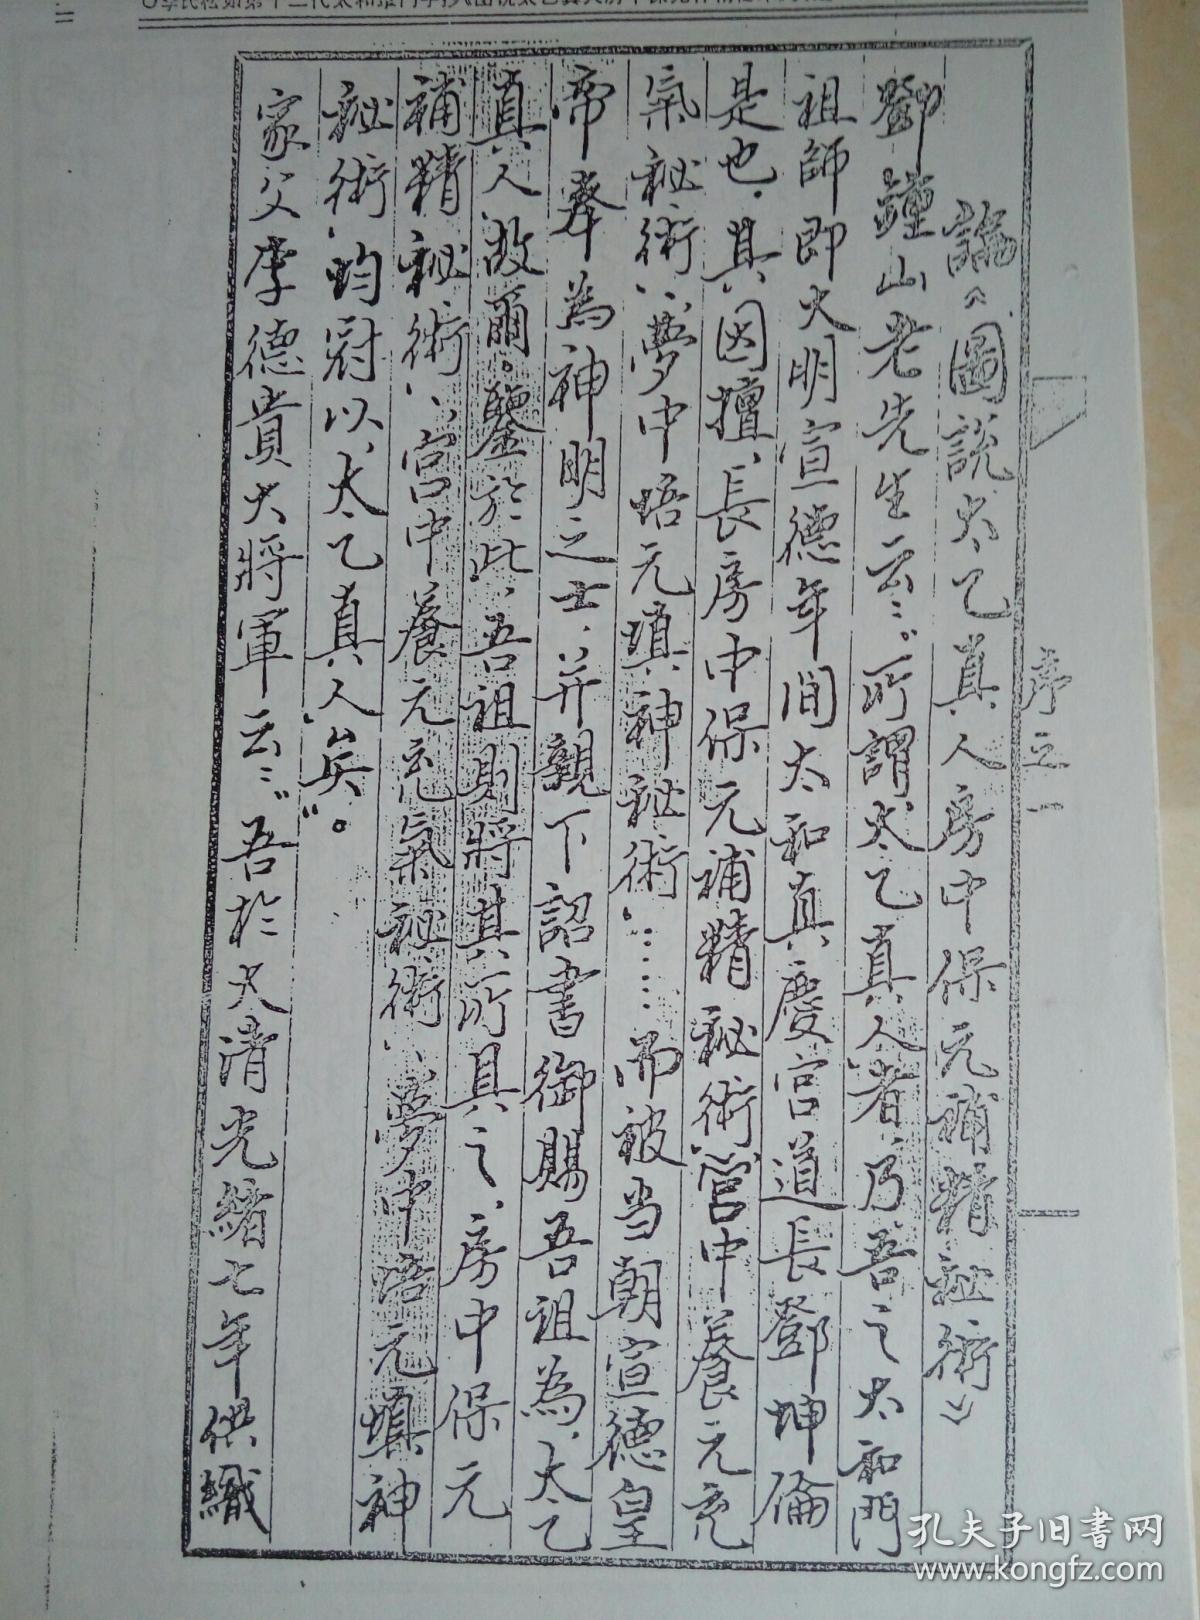 序之一
論《圖説太乙真人房中保元補精祕術》
鄧鐘山老先生云：“所謂太乙真人者，乃吾之太和門
祖師即大明宣德年間太和真慶宫道長鄧坤倫
是也，其因擅，長房中保元補精祕術、宫中養元充
氣祕術、夢中悟元填神祕術，……而被当朝宣德皇
帝奉為神明之士，并親下詔書御賜吾祖為，太乙
真人，故爾。鑒於此，吾祖則將其所具之，房中保元
補精祕術、宫中養元充氣祕術、夢中悟元填神
祕術，均冠以，太乙真人，矣”。
家父李德貴大將軍云：“吾於大清光緒七年供職
孔夫子旧書网
www.kongfz.com